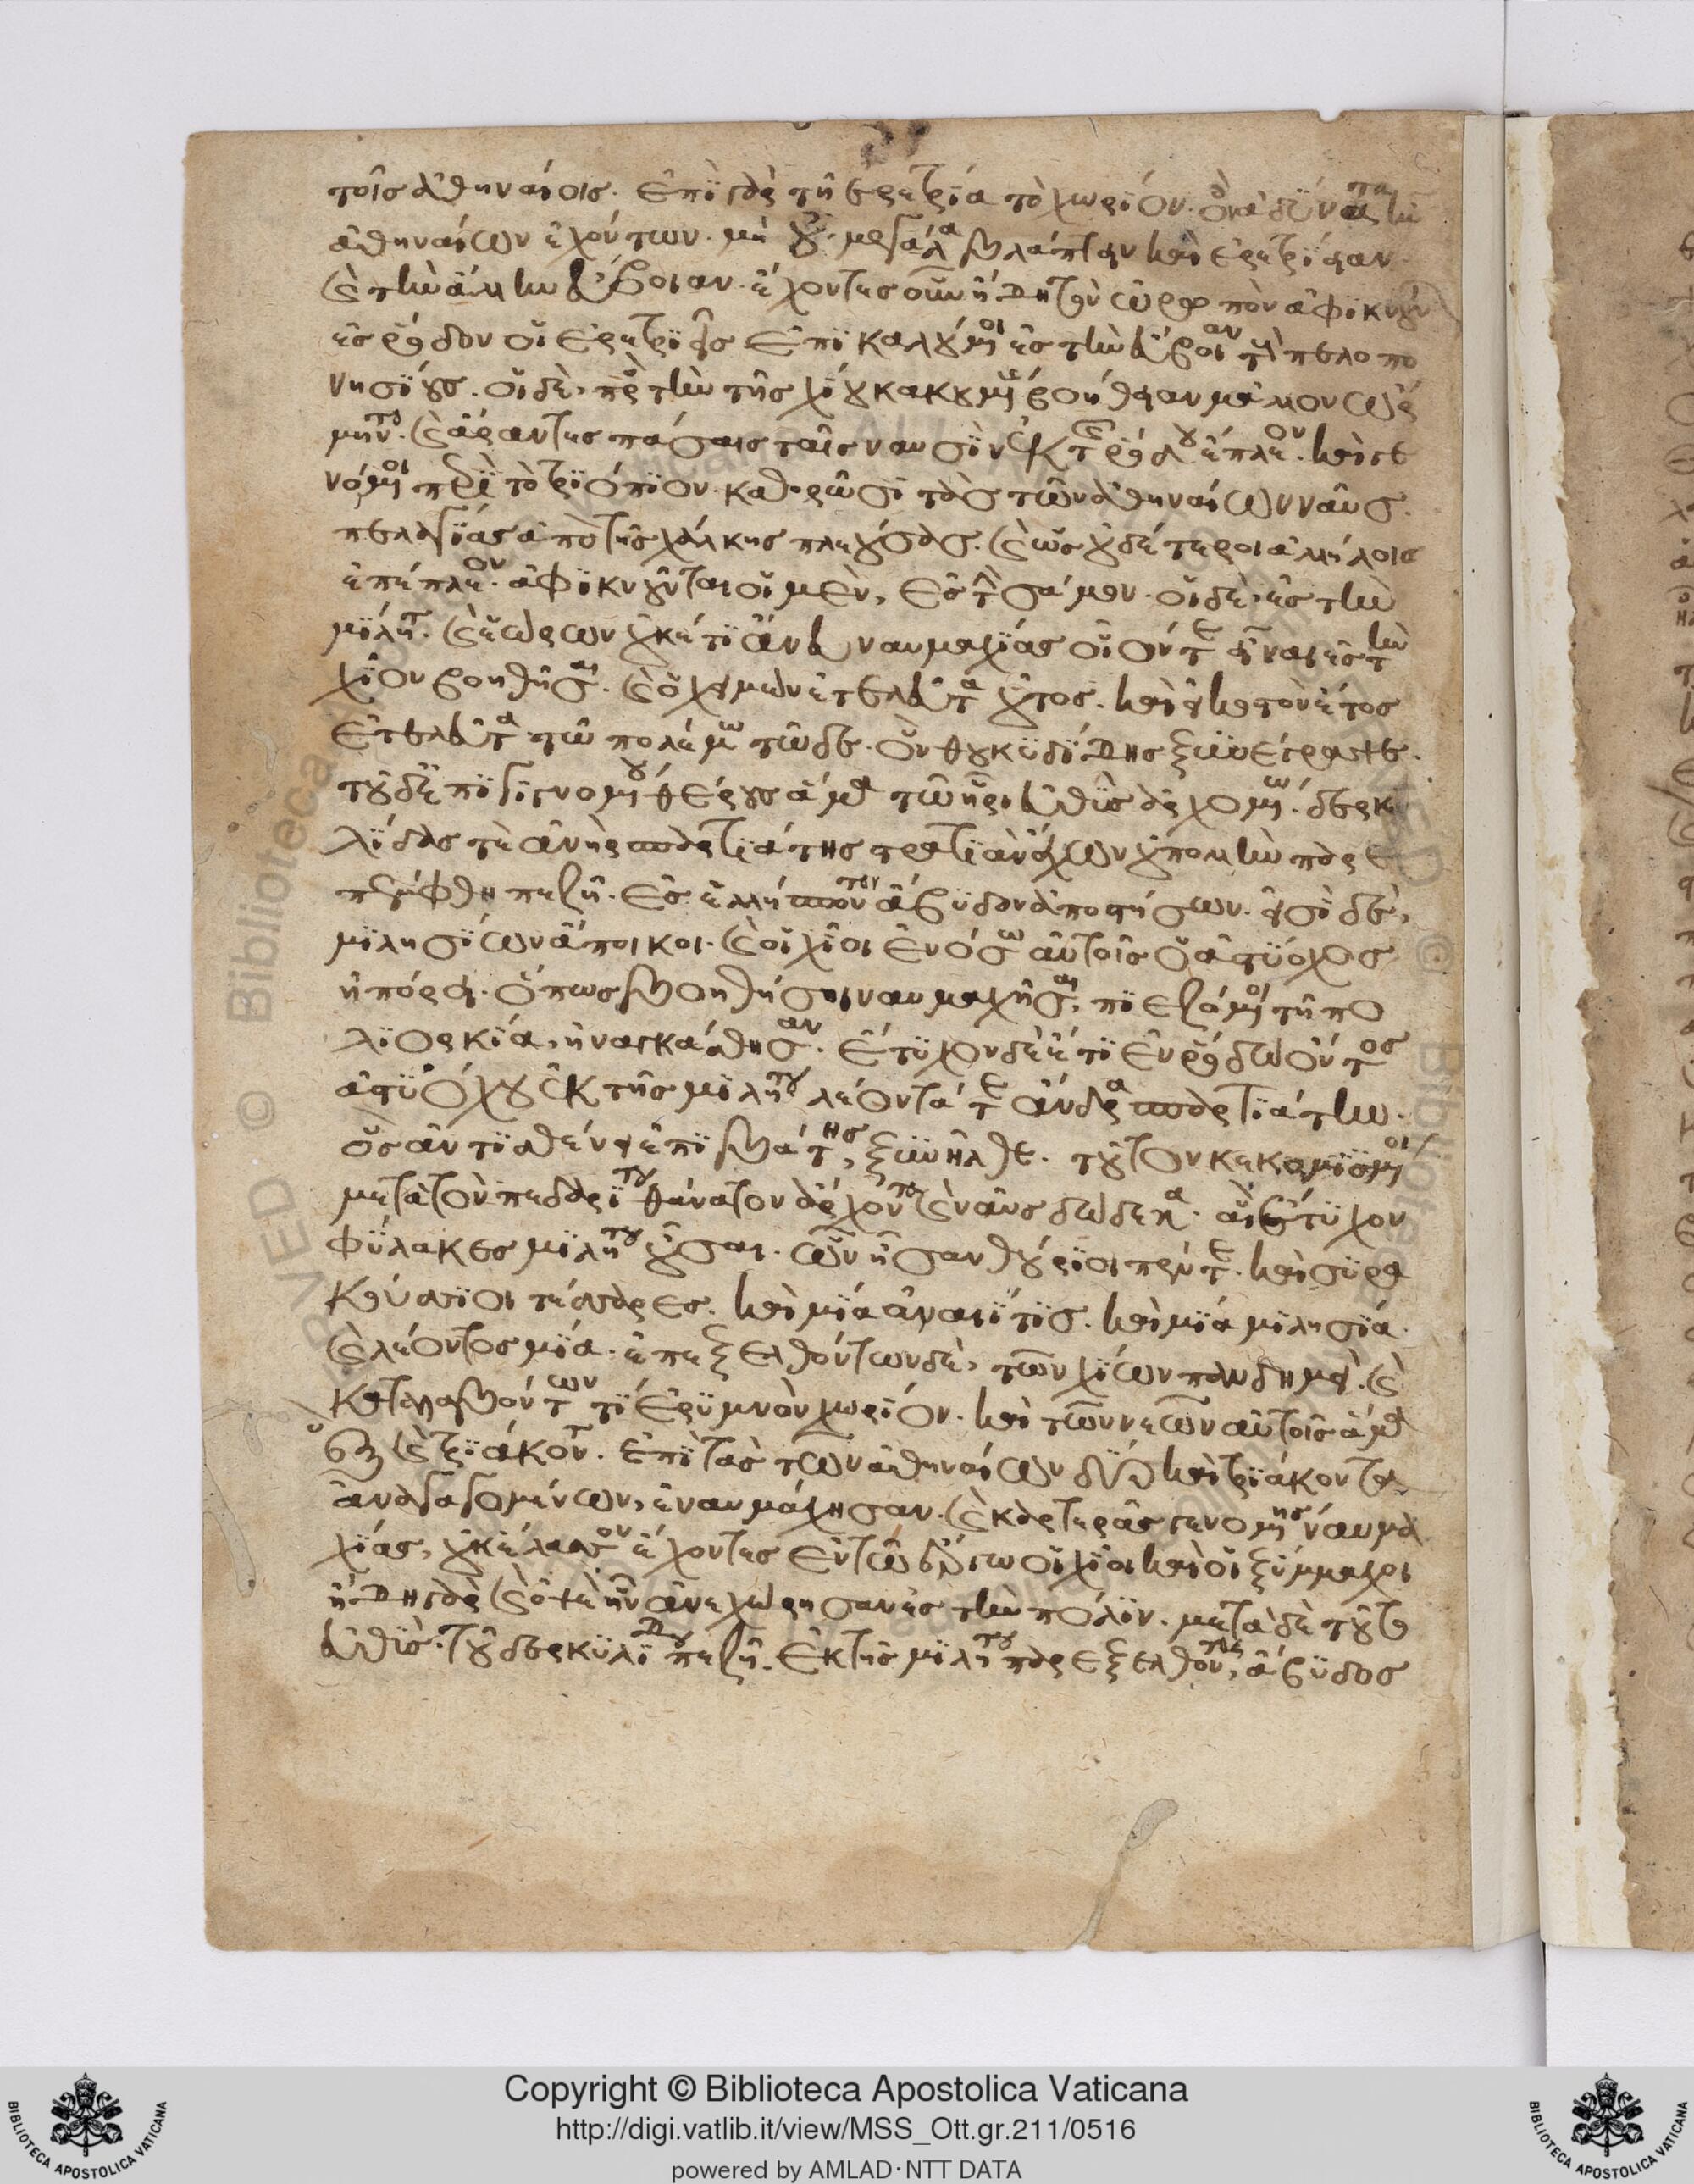 τοῖς ἀθηναίοις. ἐπὶ γὰρ τῆ ἐρετρία τὸ χωρίον. ὃν ἀδύνατα ἦν
ἀθηναίων ἐχόντων. μὴ οὐ μεγάλα βλάπτειν καὶ ἐρέτριαν
καὶ τὴν ἄλλην εὔβοιαν. ἔχοντες οὖν ἤδη τὸν ὠρωπὸν ἀφικνοῦν
ἐς ῥόδον οἱ ἐρετριεῖς ἐπικαλούμενοι ἐς τὴν εὔβοιαν τοὺς πελοπο
νησίους. οἱ δὲ, πρὸς τὴν τῆς χίου κακουμένης βοήθειαν μᾶλλον ὥρ
μηντο. καὶ ἄραντες πάσαις ταῖς ναυσὶν ἐκ τῆς ῥόδου ἔπλεον. καὶ γε
νόμενοι περὶ τὸ τριόπιον. καθορῶσι τὰς τῶν ἀθηναίων ναῦς.
πελαγίας ἀπὸ τῆς χάλκης πλεούσας. καὶ ὡς οὐδέτεροι ἀλλήλοις
ἐπέπλεον. ἀφικνοῦνται οἱ μὲν, ἐς τὴν σάμον. οἱ δὲ, ἐς τὴν
μίλητον. καὶ ἑώρων οὐκέτι ἄνευ ναυμαχίας οἷόν τε εἶναι ἐς τὴν
χῖον βοηθῆσαι. καὶ ὁ χειμὼν ἐτελεύτα οὗτος. καὶ εἰκοστὸν ἔτος
ἐτελεύτα τῶ πολέμω τῶδε. ὃν θουκυδίδης ξυνέγραψε.
τοῦ δ' ἐπιγιγνομένου θέρους ἅμα τῶ ἦρι εὐθὺς ἀρχομένω. δερκυ
λίδας τὲ ἀνὴρ σπαρτιάτης στρατιὰν ἔχων οὐ πολλὴν παρε
πέμφθη πεζῆ. ἐφ' ἑλλήσποντον ἄβυδον ἀποστήσων. εἰσὶ δὲ,
μιλησίων ἄποικοι. καὶ οἱ χῖοι ἐν ὅσω αὐτοῖς ὁ ἀστύοχος
ἠπόρει. ὅπως βοηθήσηι ναυμαχῆσαι, πιεζόμενοι τῆ πο
λιορκία, ἠναγκάσθησαν. ἔτυχον δὲ ἔτι ἐν ῥόδω ὄντος
ἀστυόχου ἐκ τῆς μιλήτου λέοντά τε ἄνδρα σπαρτιάτην.
ὃς ἀντισθένει ἐπιβάτης, ξυνῆλθε. τοῦτον κεκομισμένοι
μετὰ τὸν πεδαρίτου θάνατον ἄρχοντα καὶ ναῦς δώδεκα. αἳ ἔτυχον
φύλακες μιλήτου οὖσαι. ὧν ἦσαν θούριοι πέντε. καὶ συρα
κούσιοι τέσσαρες. καὶ μία ἀναιῖτις. καὶ μία μιλησία.
καὶ λέοντος μία. ἐπεξελθόντων δὲ, τῶν χίων πανδημεὶ. καὶ
καταλαβόντων τί ἐρυμνὸν χωρίον. καὶ τῶν νεῶν αὐτοῖς ἅμα
ἓξ καὶ τριάκοντα. ἐπὶ τὰς τῶν ἀθηναίων δύο καὶ τριάκοντα
ἀναγαγομένων, ἐναυμάχησαν. καὶ καρτερᾶς γενομένης ναυμα
χίας, οὐκ ἔλασσον ἔχοντες ἐν τῶ ἔργω οἱ χῖοι καὶ οἱ ξύμμαχοι
ἤδη γὰρ καὶ ὀψὲ ἦν ἀνεχώρησαν ἐς τὴν πόλιν. μετὰ δὲ τοῦτο
εὐθὺς. τοῦ δερκυλίδου πεζῆ. ἐκ τῆς μιλήτου παρεξελθόντος, ἄβυδος
Copyright © Biblioteca Apostolica Vaticana
http://digi.vatlib.it/view/MSS_Ott.gr.211/0516
powered by AMLAD·NTT DATA
BIBLIOTECA APOSTOLICA VATICANA
BIBLIOTECA APOSTOLICA VATICANA